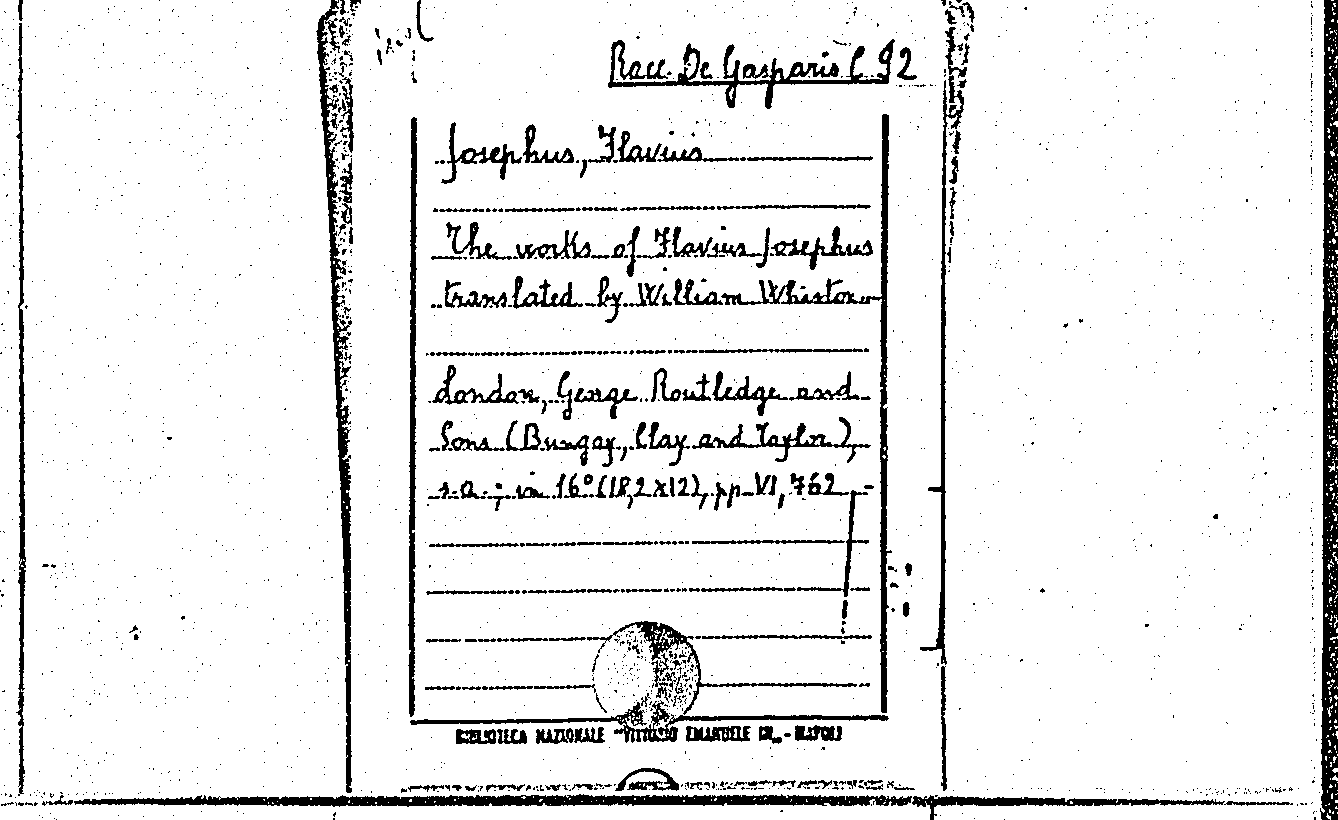 Racc. De Gasparis C 92
Josephus, Flavius
The works of Flavius Josephus
translated by William Whiston.-
London, George Routledge and
Sons (Bungay, Clay and Taylor),
s.a.; in 16° (18,2 x 12), pp. VI, 762.-
BIBLIOTECA NAZIONALE "VITTORIO EMANUELE III„ - NAPOLI